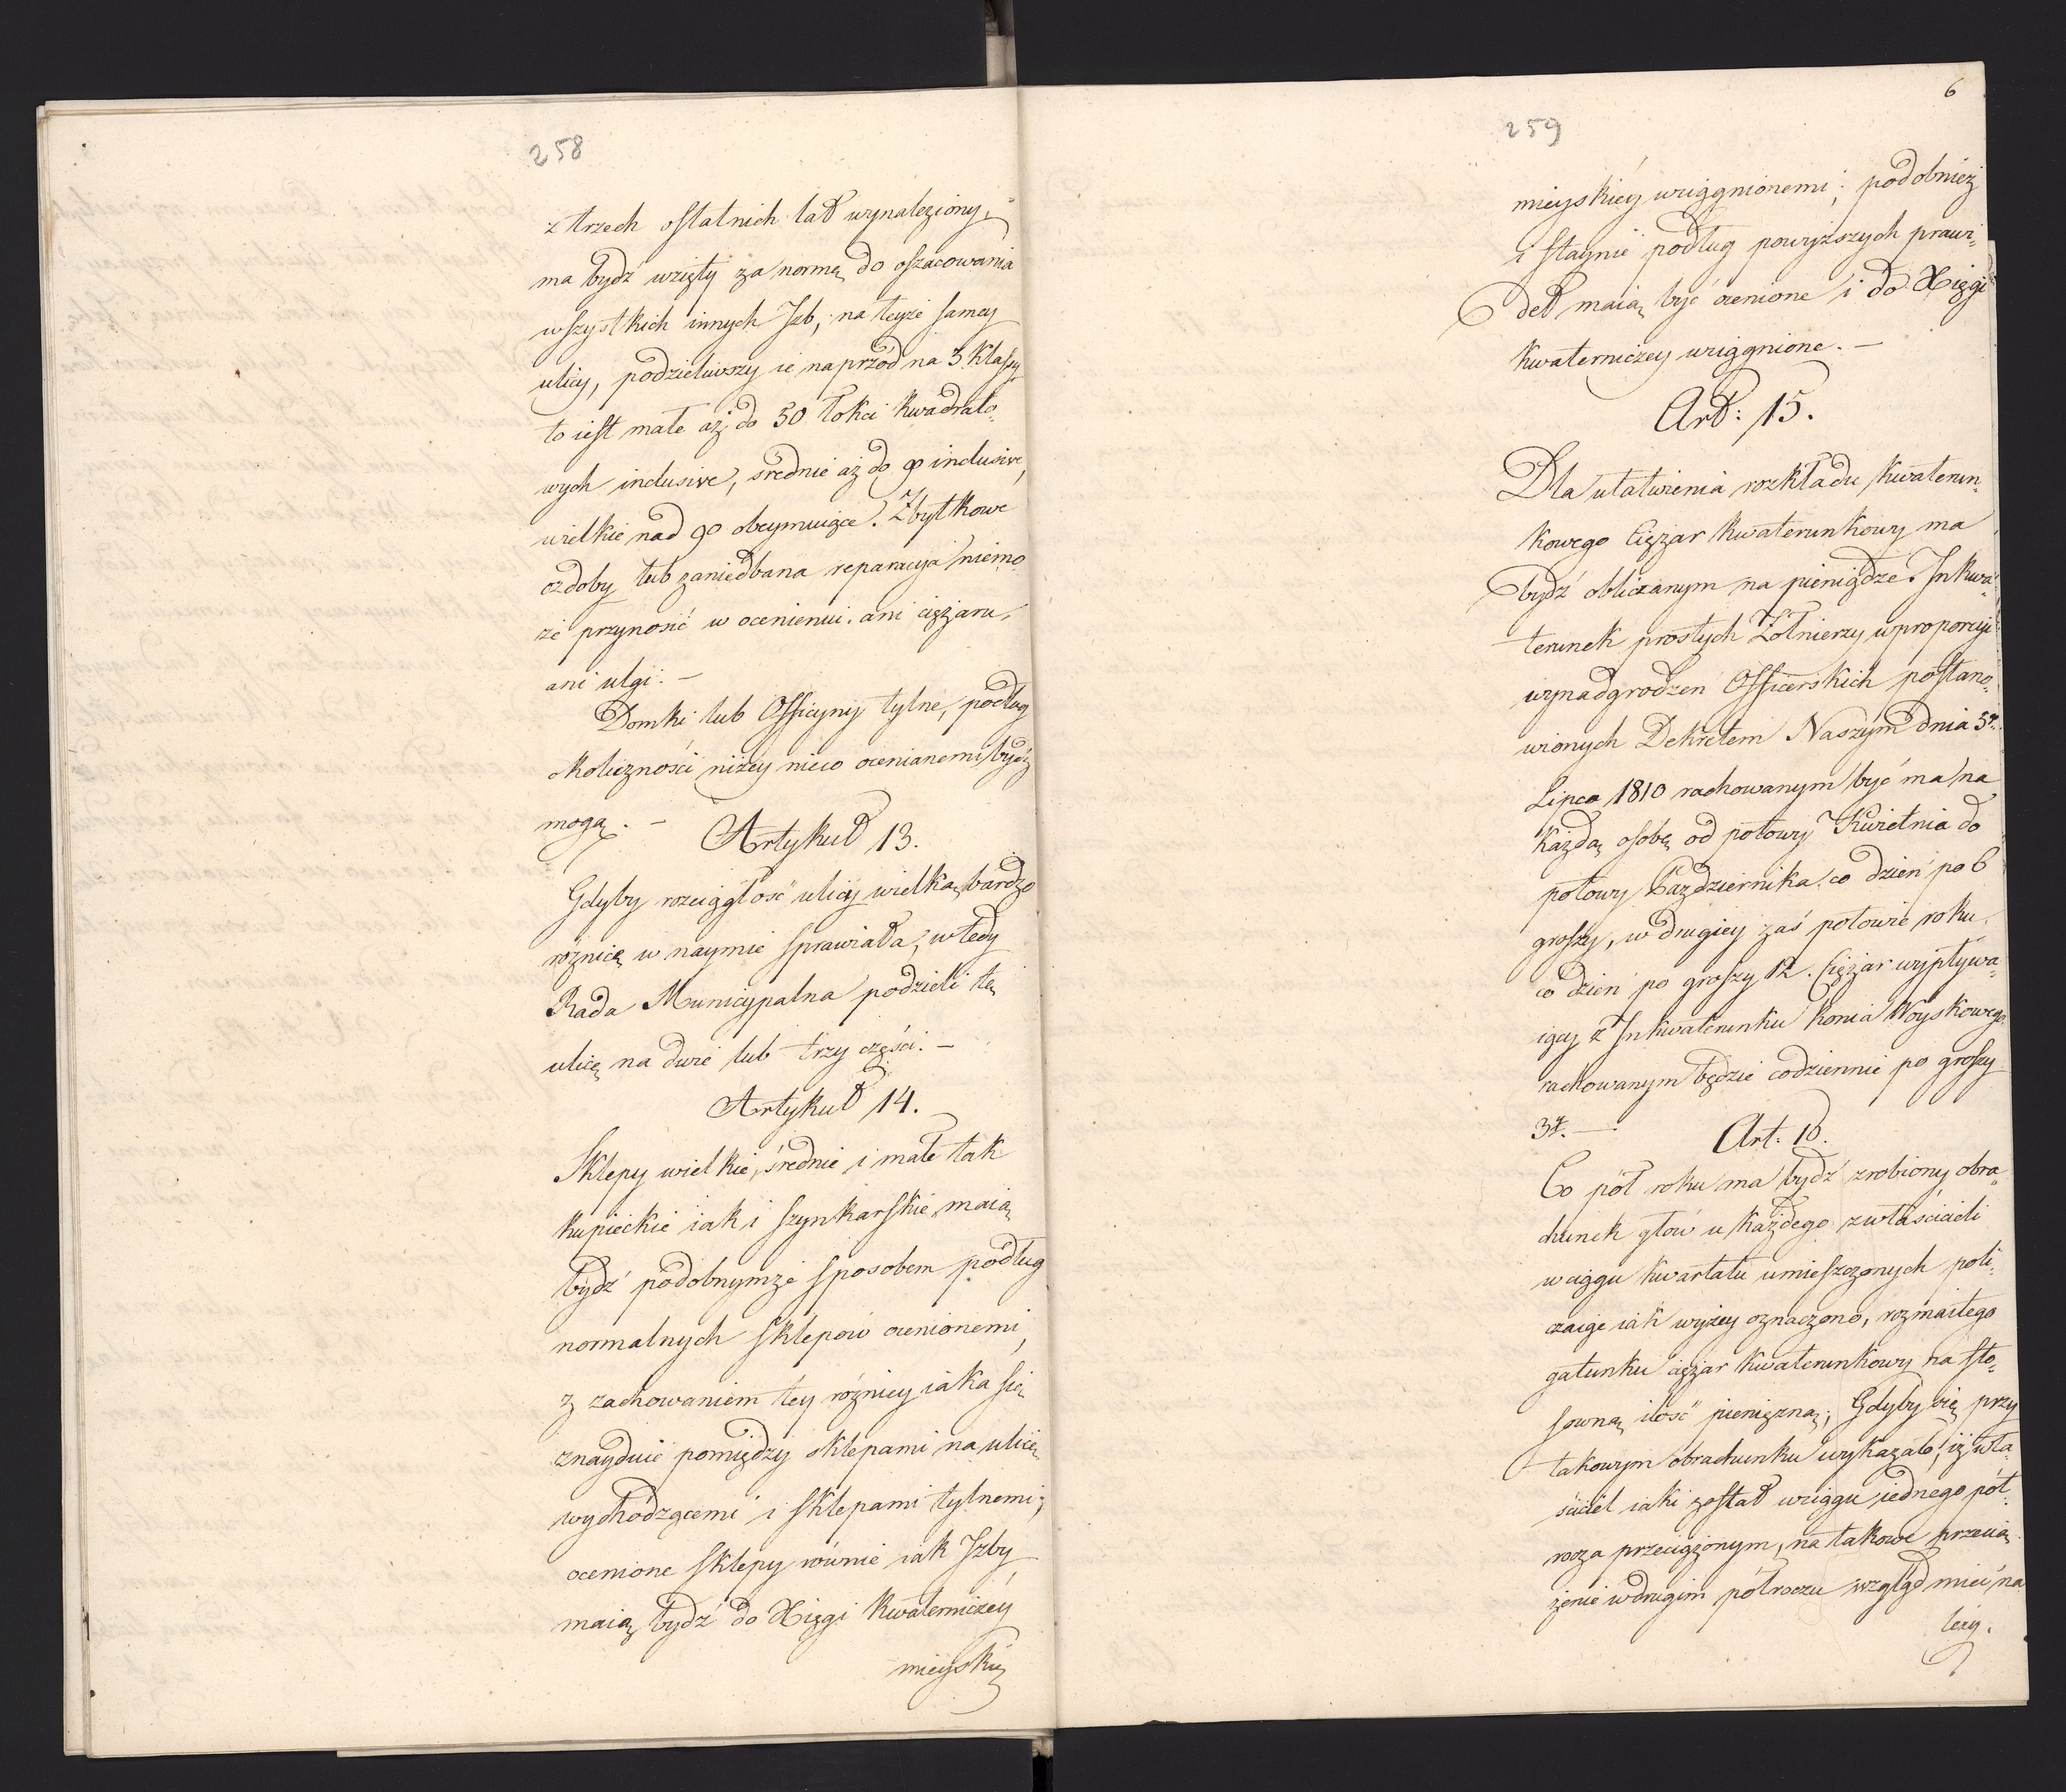 258
z trzech ostatnich lat wynaleziony,
ma bydź wzięty za normę do oszacowania
wszystkich innych Jzb, na teyże samey
ulicy, podzieliwszy ie naprzód na 3 klassy
to iest małe aż do 50 łokci kwadrato-
wych inclusive, srednie aż do 90 inclusive,
wielkie nad 90 obeymuiące. Zbytkowe
ozdoby lub zaniedbana reparacyja niemo-
że przynosić w ocenieniu ani ciężaru,
ani ulgi. —
Domki lub Officyny tylne, podług
okoliczności niżey nieco ocenianemi bydź
mogą. —
Artykuł 13.
Gdyby rozciągłość ulicy wielką bardzo
różnicę w naymie sprawiała, wtedy
Rada Municypalna podzieli tę
ulicę na dwie lub trzy części. —
Artykuł 14.
Sklepy wielkie, średnie i małe tak
kupieckie iak i szynkarskie maią
bydź podobnymże sposobem podług
normalnych sklepów ocenionemi,
z zachowaniem tey różnicy iaka się
znayduie pomiędzy sklepami na ulicę
wychodzącemi i sklepami tylnemi;
ocenione sklepy równie iak Jzby,
maią bydź do Xięgi Kwaterniczey
mieyskiey
6
259
mieyskiey wciągnionemi; podobnież
i staynie podług powyższych prawi-
deł maią być ocenione i do Xięgi
Kwaterniczey wciągnione. —
Art: 15.
Dla ułatwienia rozkładu kwaterun-
kowego Ciężar kwaterunkowy ma
bydź obliczanym na pieniądze. Jnkwa-
terunek prostych Żołnierzy w proporcyi
wynadgrodzeń Officerskich postano-
wionych Dekretem Naszym dnia 5º
Lipca 1810 rachowanym być ma na
każdą osobę od połowy Kwietnia do
połowy Pazdziernika co dzień po 6
groszy, w drugiey zaś połowie roku
co dzień po groszy 12. Ciężar wypływa-
iący z Jnkwaterunku Konia Woyskowego
rachowanym będzie codziennie po groszy
3. —
Art. 16.
Co pół roku ma bydź zrobiony obra-
chunek głów u każdego z właścicieli
w ciągu kwartału umieszczonych poli-
czaiąc iak wyżey oznaczono, rozmaitego
gatunku ciężar kwaterunkowy na sto-
sowną ilość pieniężną; Gdyby się przy
takowym obrachunku wykazało, iż wła-
ściciel iaki został w ciągu iednego pół-
rocza przeciążonym, na takowe przecią-
żenie w drugim półroczu wzgląd mieć na-
leży.